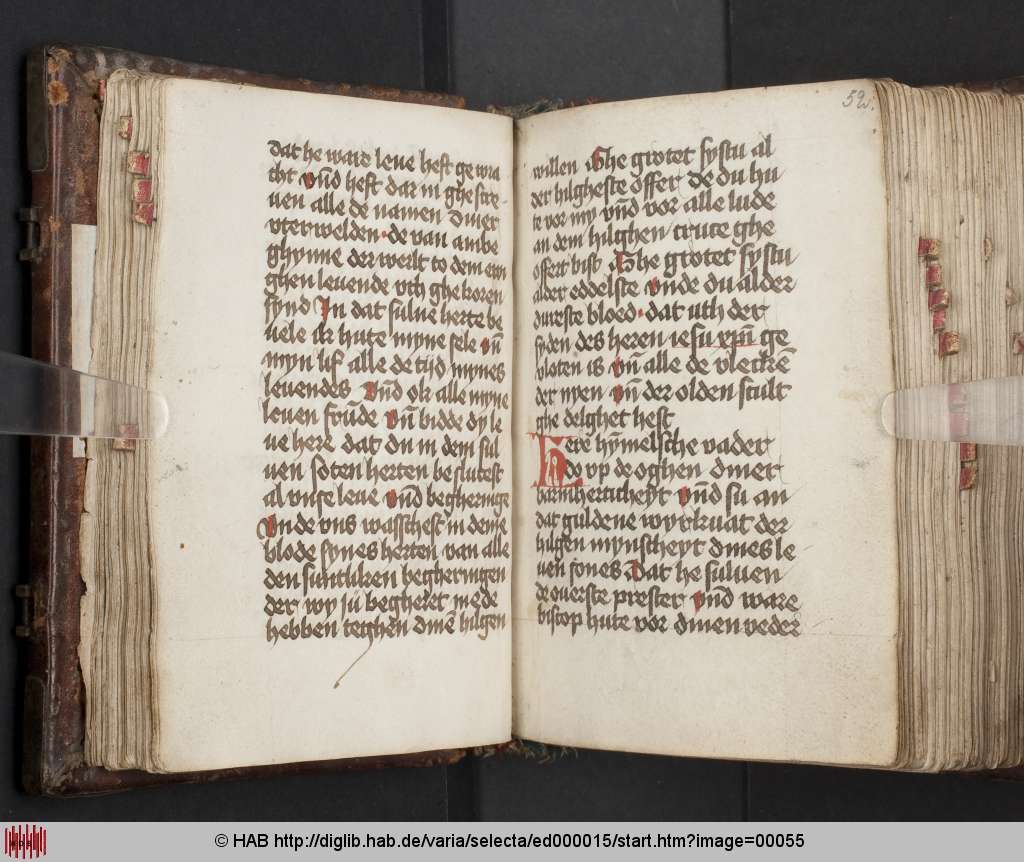 dat he ward leue heft ge wra
cht vnd heft dar in ghe scre-
uen alle de namen diner
vterwelden · de van anbe
ghynne der werlt to dem ewi
ghen leuende vth ghe koren
synd In dat sulue herte be
uele ik hute myne sele vn̄
myn lif alle de tijd mynes
leuendes Vnd ok alle myne
leuen frūde Vn̄ bidde dy le
ue here dat du in dem sul
uen soten herten be slutest
al vnse leue vnd begheringe
Vnde vns wasschest in deme
blode synes herten van alle
den suntliken begheringen
der wy iu begheret mede
hebben teghen dinē hilgen
59.
willen Ghe grotet systu al
der hilgheste offer de du hu
te vor my vnd vor alle lude
an dem hilghen cruce ghe
offert bist Ghe grotet systu
alder eddelste vnde du alder
dureste bloed · dat uth der
syden des heren ie su xpi ge
vloten is vn̄ alle de vleckē
der nyen vn̄ der olden scult
ghe delghet hest
Here hȳmelsche vader
do vp de oghen diner
barmherticheyt vnd su an
dat guldene wyrkuat der
hilgen mynscheyt dines le
uen sones Dat he suluen
de ouerste prester vnd ware
biscop hute vor dinen veder
© HAB http://diglib.hab.de/varia/selecta/ed000015/start.htm?image=00055